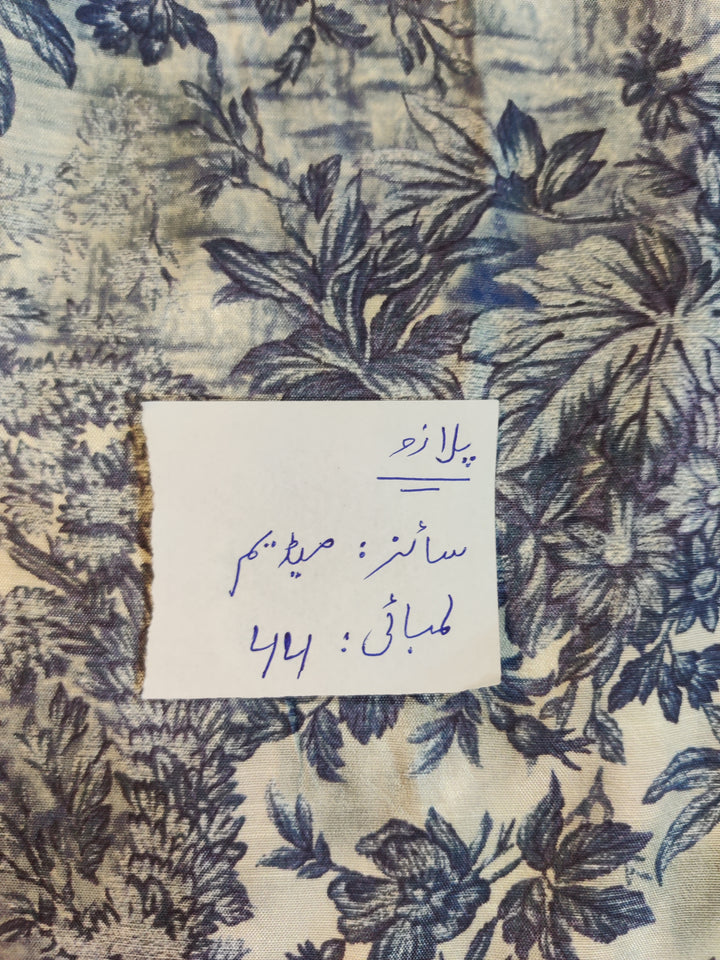 پلازو
سائز: میڈیم
لمبائی: 44